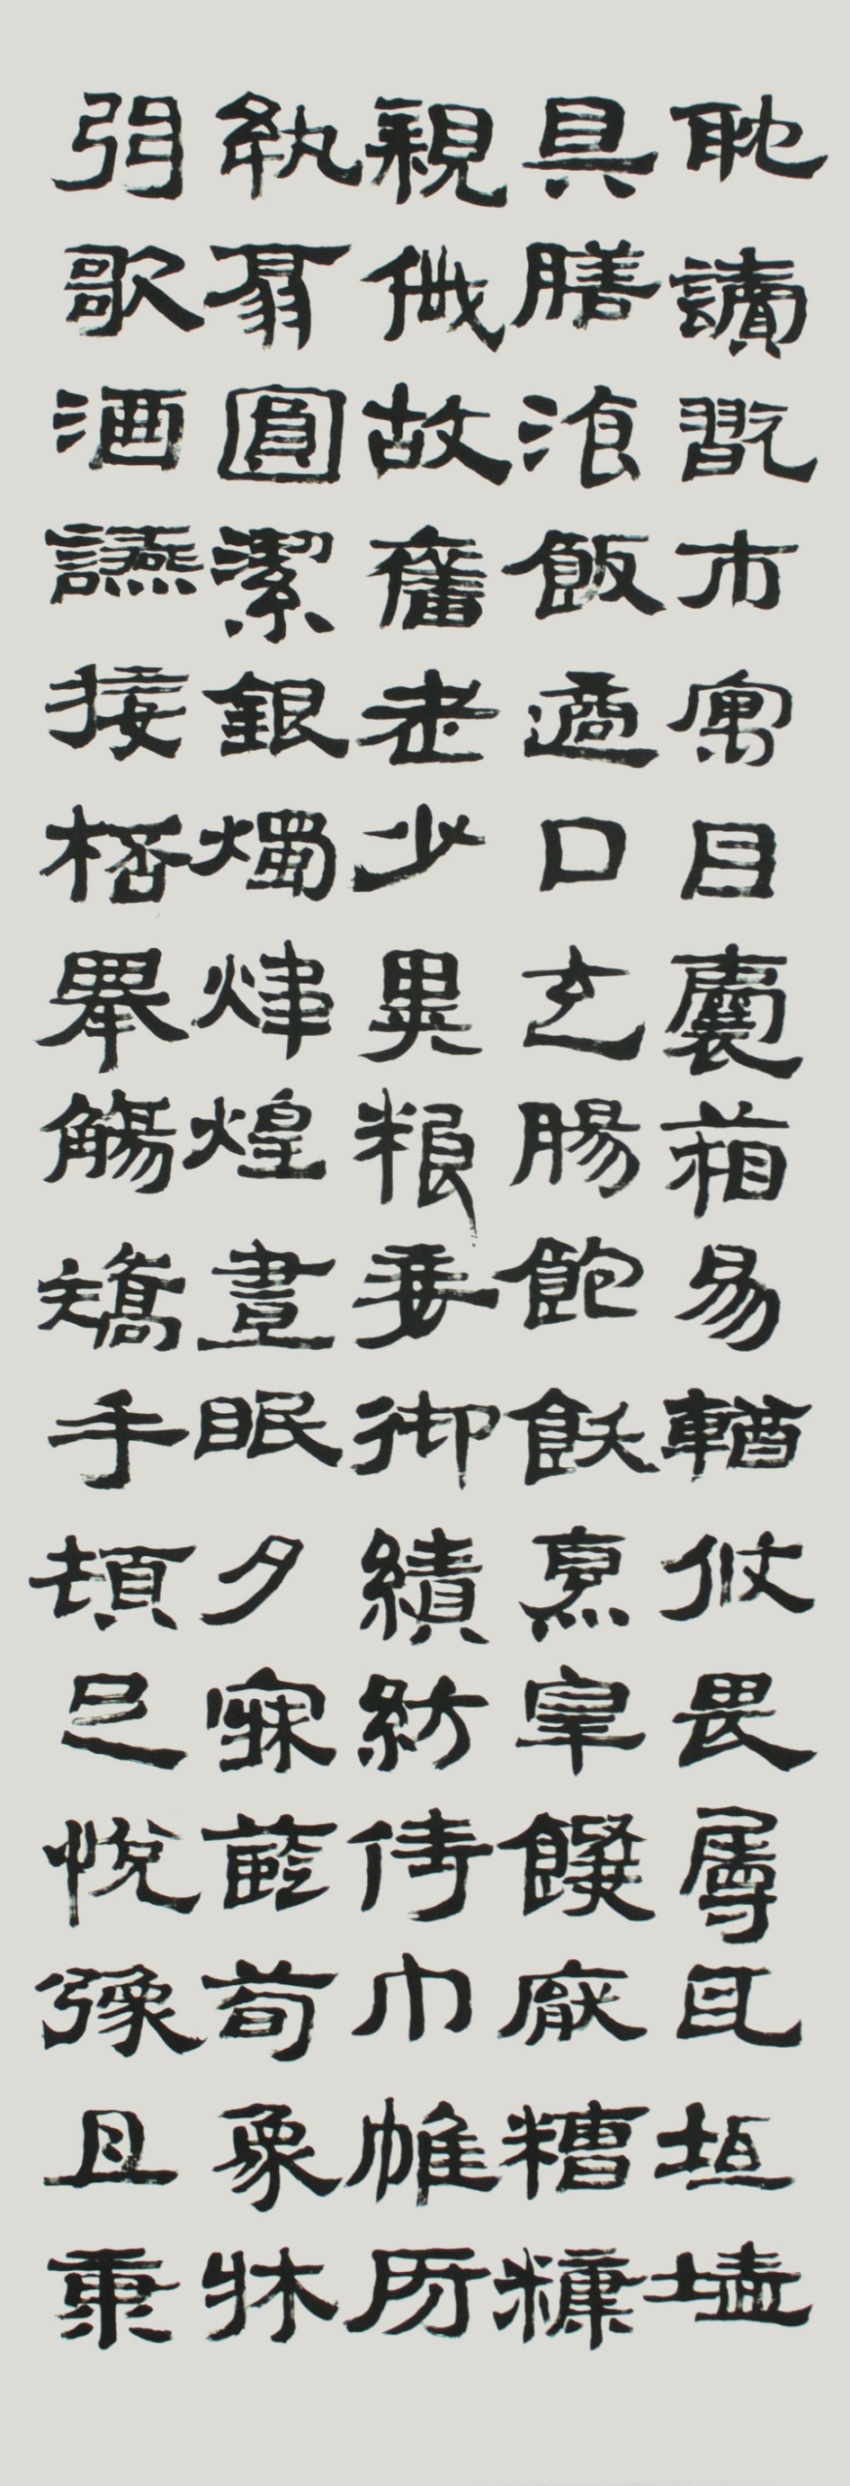 耽讀翫市寓目囊箱易輶攸畏屬耳垣墻
具膳飡飯適口充腸飽飫烹宰饑厭糟糠
親戚故舊老少異粮妾御績紡侍巾帷房
紈扇圓潔銀燭煒煌晝眠夕寐藍筍象牀
弦歌酒讌接桮舉觴矯手頓足悅豫且康